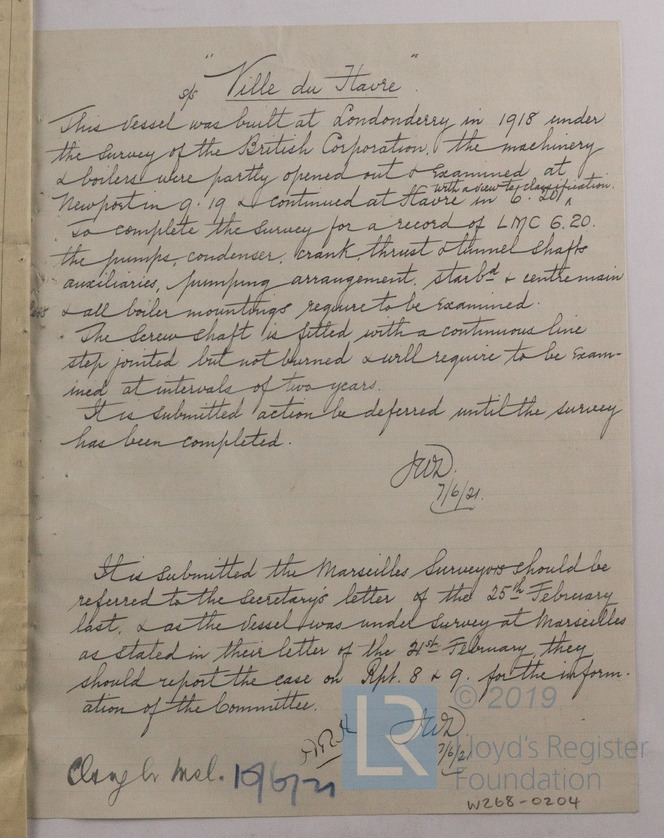 s/s "Ville du Havre".
This vessel was built at Londonderry in 1918 under
the survey of the British Corporation. the machinery
& boilers were partly opened out & examined at
Newport in 9.19 & continued at Havre in 6.20 with a view to classification.
To complete the survey for a record of LMC 6.20.
the pumps, condenser, crank, thrust & tunnel shafts
auxiliaries, pumping arrangement, starbd & centre main
& all boiler mountings require to be examined.
The screw shaft is fitted with a continuous line
step jointed but not burned & will require to be exam-
ined at intervals of two years.
It is submitted action be deferred until the survey
has been completed.
JWD.
7/6/21.
It is submitted the Marseilles Surveyors should be
referred to the Secretary's letter of the 25th February
last, & as the vessel was under survey at Marseilles
as stated in their letter of the 21st February, they
should report the case on Rpt. 8 & 9. for the inform-
ation of the Committee.
JWD
7/6/21
10/6/21
© 2019
LR Lloyd's Register
Foundation
W268-0204